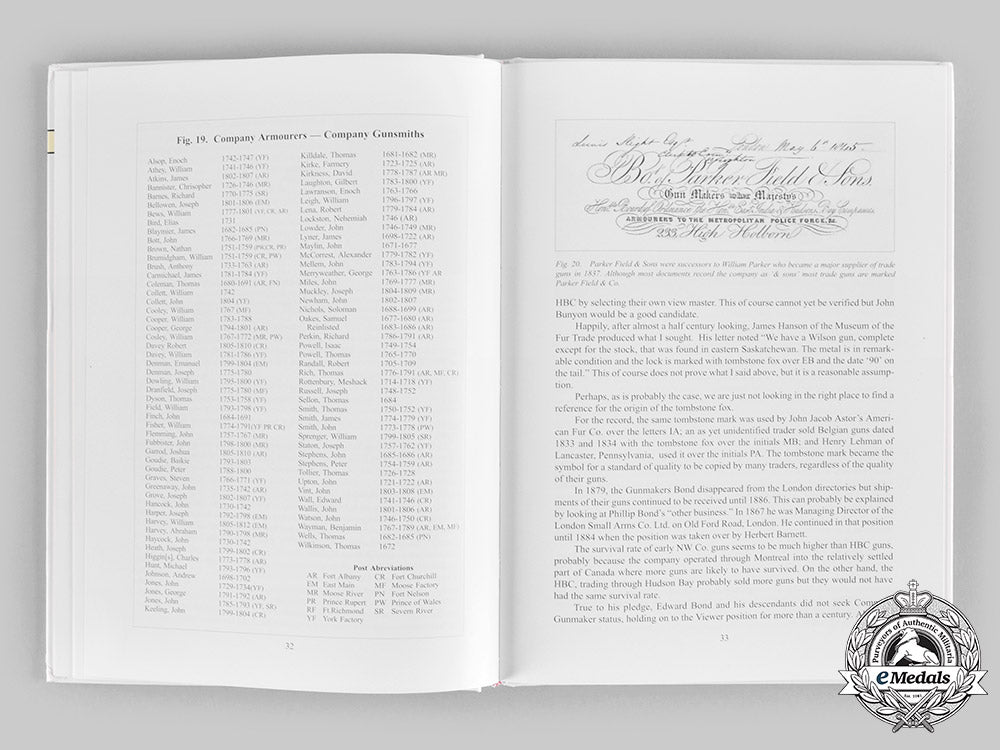 Fig. 19. Company Armourers — Company Gunsmiths
Alsop, Enoch 1742-1747 (YF)
Athey, William 1741-1746 (YF)
Atkins, James 1802-1807 (AR)
Bannister, Chrisopher 1726-1746 (MR)
Barnes, Richard 1770-1775 (SR)
Bellowen, Joseph 1801-1806 (EM)
Bews, William 1777-1801 (YF, CR, AR)
Bird, Elias 1731
Blaymier, James 1682-1685 (PN)
Bott, John 1766-1769 (MR)
Brown, Nathan 1751-1759 (PW,CR, PR)
Brumidgham, William 1751-1759 (CR, PW)
Brush, Anthony 1733-1763 (AR)
Carmichael, James 1781-1784 (YF)
Coleman, Thomas 1680-1691 (AR, FN)
Collett, William 1742
Collett, John 1804 (YF)
Cooley, William 1767 (MF)
Cooper, William 1783-1788
Cooper, George 1794-1801 (AR)
Cosley, William 1767-1772 (MR, PW)
Davey Robert 1805-1810 (CR)
Davey, William 1781-1786 (YF)
Denman, Emanuel 1799-1804 (EM)
Denman, Joseph 1775-1780
Dowling, William 1795-1800 (YF)
Dranfield, Joseph 1775-1780 (MF)
Dyson, Thomas 1753-1758 (YF)
Field, William 1793-1798 (YF)
Finch, John 1684-1691
Fisher, William 1774-1791(YF PR CR)
Flemming, John 1757-1767 (MR)
Fubbister, John 1798-1800 (MR)
Garrod, Joshua 1805-1810 (AR)
Goudie, Baikie 1793-1803
Goudie, Peter 1788-1800
Graves, Steven 1766-1771 (YF)
Greenaway, John 1735-1742 (AR)
Grove, Joseph 1802-1807 (YF)
Hancock, John 1730-1742
Harper, Joseph 1792-1798 (EM)
Harvey, William 1805-1812 (EM)
Harvey, Abraham 1790-1798 (MR)
Haycock, John 1730-1742
Heath, Joseph 1799-1802 (CR)
Higgin[s], Charles 1773-1778 (AR)
Hunt, Michael 1793-1796 (YF)
Johnson, Andrew 1698-1702
Jones, John 1729-1734(YF)
Jones, George 1791-1792 (AR)
Jones, John 1785-1793 (YF, SR)
Keeling, John 1799-1804 (CR)
Killdale, Thomas 1681-1682 (MR)
Kirke, Farmery 1723-1725 (AR)
Kirkness, David 1778-1787 (AR MR)
Laughton, Gilbert 1783-1800 (YF)
Lawranson, Enoch 1763-1766
Leigh, William 1796-1797 (YF)
Lena, Robert 1779-1784 (AR)
Lockston, Nehemiah 1746 (AR)
Lowder, John 1746-1749 (MR)
Lyner, James 1698-1722 (AR)
Mayfin, John 1671-1677
McCorrest, Alexander 1779-1782 (YF)
Mellem, John 1783-1794 (YF)
Merryweather, George 1763-1786 (YF AR
Miles, John 1769-1777 (MR)
Muckley, Joseph 1804-1809 (MR)
Newham, John 1802-1807
Nichols, Soloman 1688-1699 (AR)
Oakes, Samuel 1677-1680 (AR)
Reinlisted 1683-1686 (AR)
Perkin, Richard 1786-1791 (AR)
Powell, Isaac 1749-1754
Powell, Thomas 1765-1770
Randall, Robert 1705-1709
Rich, Thomas 1776-1791 (AR, MF, CR)
Rottenbury, Meshack 1714-1718 (YF)
Russell, Joseph 1748-1752
Sellon, Thomas 1684
Smith, Thomas 1750-1752 (YF)
Smith, James 1774-1779 (YF)
Smith, John 1773-1778 (PW)
Sprenger, William 1799-1805 (SR)
Staton, Joseph 1757-1762 (YF)
Stephens, John 1685-1686 (AR)
Stephens, Peter 1754-1759 (AR)
Tollier, Thomas 1726-1728
Upton, John 1721-1722 (AR)
Vint, John 1803-1808 (EM)
Wall, Edward 1741-1746 (CR)
Wallis, John 1801-1806 (AR)
Watson, John 1746-1750 (CR)
Wayman, Benjamin 1767-1789 (AR, EM, MF)
Wells, Thomas 1682-1685 (PN)
Wilkinson, Thomas 1672
Post Abreviations
AR Fort Albany CR Fort Churchill
EM East Main MF Moose Factory
MR Moose River PN Fort Nelson
PR Prince Rupert PW Prince of Wales
RF Ft.Richmond SR Severn River
YF York Factory
32
London May 6th 1845
Bo.t of Parker Field & Sons.
Gun Makers to Her Majesty
ARMOURERS TO THE METROPOLITAN POLICE FORCE, &c
233, High Holborn
Fig. 20. Parker Field & Sons were successors to William Parker who became a major supplier of trade
guns in 1837. Although most documents record the company as '& sons' most trade guns are marked
Parker Field & Co.
HBC by selecting their own view master. This of course cannot yet be verified but John
Bunyon would be a good candidate.
Happily, after almost a half century looking, James Hanson of the Museum of the
Fur Trade produced what I sought. His letter noted "We have a Wilson gun, complete
except for the stock, that was found in eastern Saskatchewan. The metal is in remark-
able condition and the lock is marked with tombstone fox over EB and the date '90' on
the tail." This of course does not prove what I said above, but it is a reasonable assump-
tion.
Perhaps, as is probably the case, we are just not looking in the right place to find a
reference for the origin of the tombstone fox.
For the record, the same tombstone mark was used by John Jacob Astor's Ameri-
can Fur Co. over the letters IA; an as yet unidentified trader sold Belgian guns dated
1833 and 1834 with the tombstone fox over the initials MB; and Henry Lehman of
Lancaster, Pennsylvania, used it over the initials PA. The tombstone mark became the
symbol for a standard of quality to be copied by many traders, regardless of the quality
of their guns.
In 1879, the Gunmakers Bond disappeared from the London directories but ship-
ments of their guns continued to be received until 1886. This can probably be explained
by looking at Phillip Bond's "other business." In 1867 he was Managing Director of the
London Small Arms Co. Ltd. on Old Ford Road, London. He continued in that position
until 1884 when the position was taken over by Herbert Barnett.
The survival rate of early NW Co. guns seems to be much higher than HBC guns,
probably because the company operated through Montreal into the relatively settled
part of Canada where more guns are likely to have survived. On the other hand, the
HBC, trading through Hudson Bay probably sold more guns but they would not have
had the same survival rate.
True to his pledge, Edward Bond and his descendants did not seek
Gunmaker status, holding on to the Viewer position for more than a century.
33
Purveyors of Authentic Militaria
eMedals